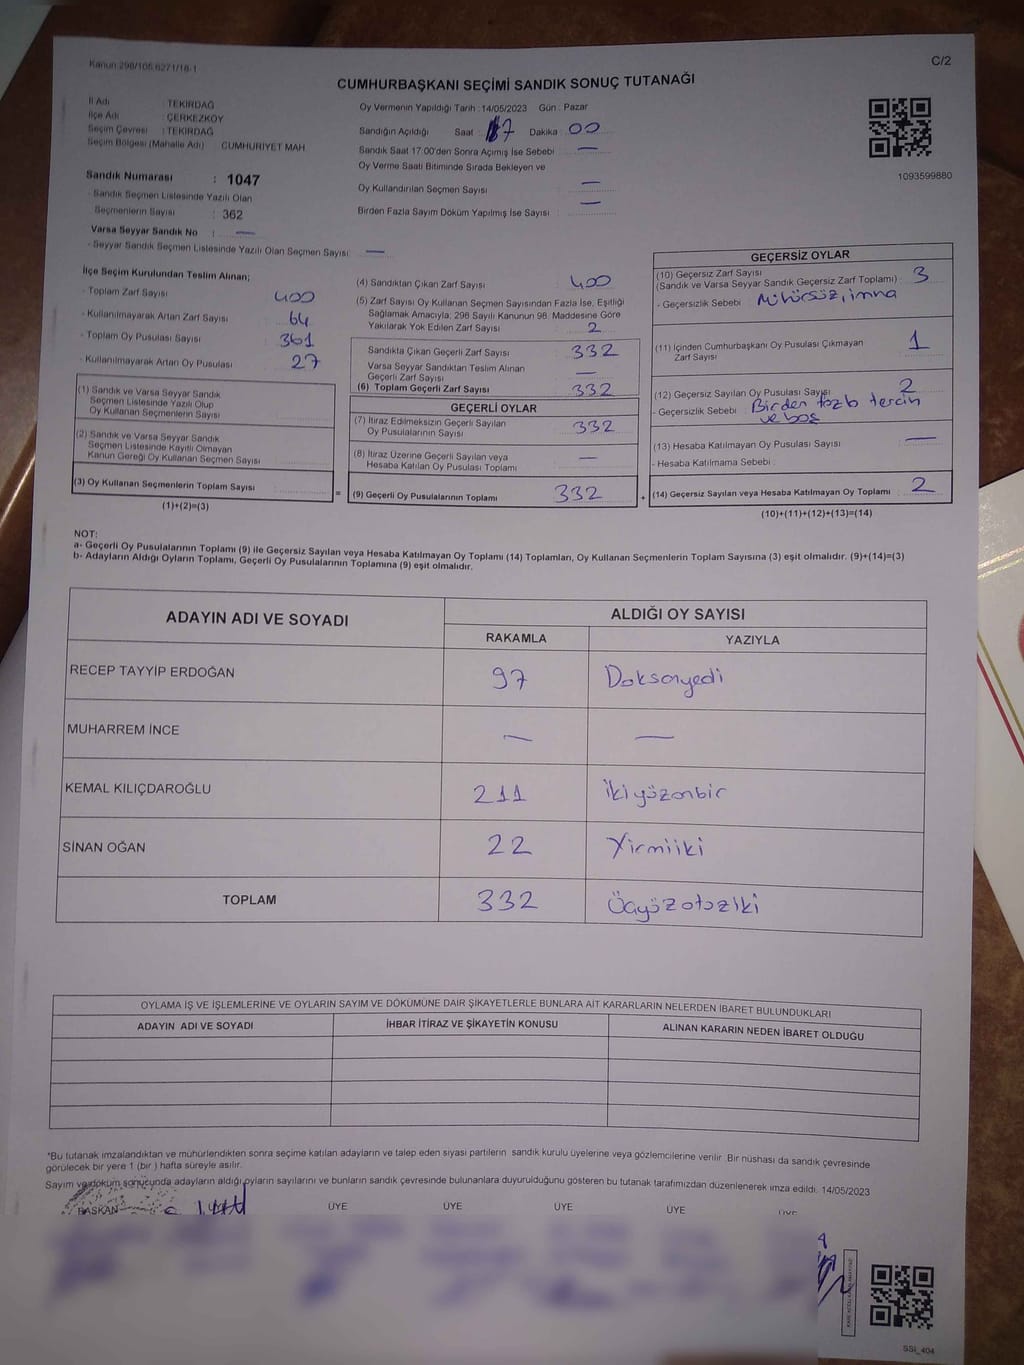 Kanun 298/105,6271/18-1
C/2
CUMHURBAŞKANI SEÇİMİ SANDIK SONUÇ TUTANAĞI
İl Adı : TEKİRDAĞ
İlçe Adı : ÇERKEZKÖY
Seçim Çevresi : TEKİRDAĞ
Seçim Bölgesi (Mahalle Adı) CUMHURİYET MAH
Sandık Numarası : 1047
- Sandık Seçmen Listesinde Yazılı Olan
Seçmenlerin Sayısı : 362
Varsa Seyyar Sandık No : —
- Seyyar Sandık Seçmen Listesinde Yazılı Olan Seçmen Sayısı: —
Oy Vermenin Yapıldığı Tarih : 14/05/2023 Gün : Pazar
Sandığın Açıldığı Saat : 17 Dakika : 00
Sandık Saat 17:00'den Sonra Açımış İse Sebebi : —
Oy Verme Saati Bitiminde Sırada Bekleyen ve
Oy Kullandırılan Seçmen Sayısı : —
Birden Fazla Sayım Döküm Yapılmış İse Sayısı : —
1093599880
İlçe Seçim Kurulundan Teslim Alınan;
- Toplam Zarf Sayısı : 400
- Kullanılmayarak Artan Zarf Sayısı : 64
- Toplam Oy Pusulası Sayısı : 361
- Kullanılmayarak Artan Oy Pusulası : 27
(1) Sandık ve Varsa Seyyar Sandık
Seçmen Listesinde Yazılı Olup
Oy Kullanan Seçmenlerin Sayısı :
(2) Sandık ve Varsa Seyyar Sandık
Seçmen Listesinde Kayıtlı Olmayan
Kanun Gereği Oy Kullanan Seçmen Sayısı :
(3) Oy Kullanan Seçmenlerin Toplam Sayısı :
(1)+(2)=(3)
(4) Sandıktan Çıkan Zarf Sayısı : 400
(5) Zarf Sayısı Oy Kullanan Seçmen Sayısından Fazla İse, Eşitliği
Sağlamak Amacıyla; 298 Sayılı Kanunun 98. Maddesine Göre
Yakılarak Yok Edilen Zarf Sayısı : 2
Sandıkta Çıkan Geçerli Zarf Sayısı : 332
Varsa Seyyar Sandıktan Teslim Alınan
Geçerli Zarf Sayısı : —
(6) Toplam Geçerli Zarf Sayısı : 332
GEÇERLİ OYLAR
(7) İtiraz Edilmeksizin Geçerli Sayılan
Oy Pusulalarının Sayısı : 332
(8) İtiraz Üzerine Geçerli Sayılan veya
Hesaba Katılan Oy Pusulası Toplamı : —
= (9) Geçerli Oy Pusulalarının Toplamı : 332
GEÇERSİZ OYLAR
(10) Geçersiz Zarf Sayısı
(Sandık ve Varsa Seyyar Sandık Geçersiz Zarf Toplamı) : 3
- Geçersizlik Sebebi : Mühürsüz, imza
(11) İçinden Cumhurbaşkanı Oy Pusulası Çıkmayan
Zarf Sayısı : 1
(12) Geçersiz Sayılan Oy Pusulası Sayısı : 2
- Geçersizlik Sebebi : Birden fazla tercih
ve boş
(13) Hesaba Katılmayan Oy Pusulası Sayısı : —
- Hesaba Katılmama Sebebi :
+ (14) Geçersiz Sayılan veya Hesaba Katılmayan Oy Toplamı : 2
(10)+(11)+(12)+(13)=(14)
NOT:
a- Geçerli Oy Pusulalarının Toplamı (9) ile Geçersiz Sayılan veya Hesaba Katılmayan Oy Toplamı (14) Toplamları, Oy Kullanan Seçmenlerin Toplam Sayısına (3) eşit olmalıdır. (9)+(14)=(3)
b- Adayların Aldığı Oyların Toplamı, Geçerli Oy Pusulalarının Toplamına (9) eşit olmalıdır.
ADAYIN ADI VE SOYADI ALDIĞI OY SAYISI
RAKAMLA YAZIYLA
RECEP TAYYİP ERDOĞAN 97 Doksanyedi
MUHARREM İNCE — —
KEMAL KILIÇDAROĞLU 211 ikiyüzonbir
SİNAN OĞAN 22 Yirmiiki
TOPLAM 332 Üçyüzotuziki
OYLAMA İŞ VE İŞLEMLERİNE VE OYLARIN SAYIM VE DÖKÜMÜNE DAİR ŞİKAYETLERLE BUNLARA AİT KARARLARIN NELERDEN İBARET BULUNDUKLARI
ADAYIN ADI VE SOYADI İHBAR İTİRAZ VE ŞİKAYETİN KONUSU ALINAN KARARIN NEDEN İBARET OLDUĞU
*Bu tutanak imzalandıktan ve mühürlendikten sonra seçime katılan adayların ve talep eden siyasi partilerin sandık kurulu üyelerine veya gözlemcilerine verilir. Bir nüshası da sandık çevresinde
görülecek bir yere 1 (bir) hafta süreyle asılır.
Sayım ve döküm sonucunda adayların aldığı oyların sayılarını ve bunların sandık çevresinde bulunanlara duyurulduğunu gösteren bu tutanak tarafımızdan düzenlenerek imza edildi. 14/05/2023
BAŞKAN ÜYE ÜYE ÜYE ÜYE ÜYE
SSI_404